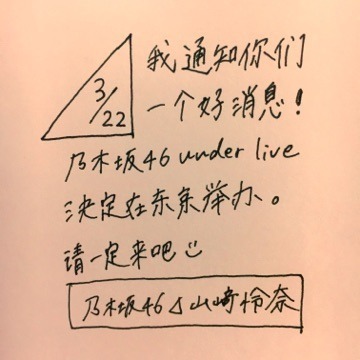 3/22
我通知你们
一个好消息!
乃木坂46 under live
决定在东京举办。
请一定来吧
乃木坂46⊿山崎怜奈